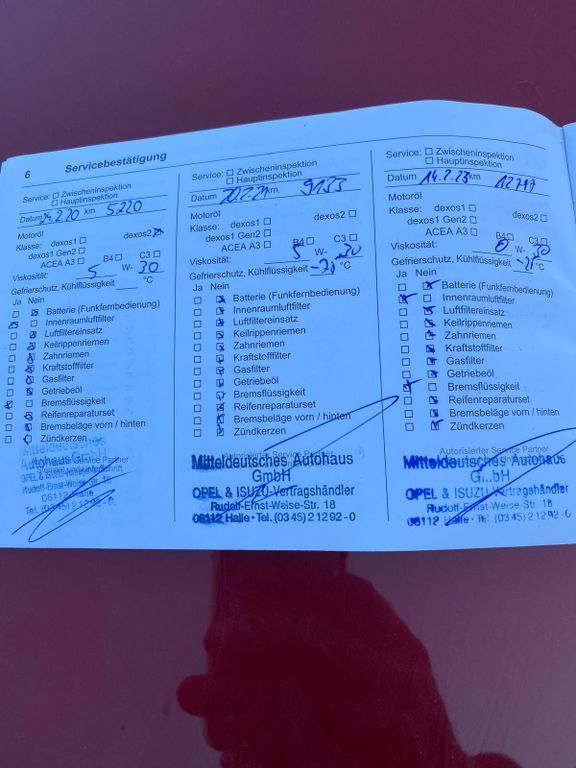 6 Servicebestätigung
Service: □ Zwischeninspektion
□ Hauptinspektion
Datum 24.2.20 km 5220
Motoröl
Klasse: dexos1 □ dexos2 ☒
dexos1 Gen2 □
ACEA A3 □ B4 □ C3 □
Viskosität: 5 W- 30
Gefrierschutz, Kühlflüssigkeit °C
Ja Nein
□ ☒ Batterie (Funkfernbedienung)
☒ □ Innenraumluftfilter
□ ☒ Luftfiltereinsatz
□ ☒ Keilrippenriemen
□ ☒ Zahnriemen
□ ☒ Kraftstofffilter
□ ☒ Gasfilter
□ ☒ Getriebeöl
☒ □ Bremsflüssigkeit
□ ☒ Reifenreparaturset
□ ☒ Bremsbeläge vorn / hinten
□ ☒ Zündkerzen
Mitteldeutsches
Autohaus GmbH
OPEL & ISUZU-Vertragshändler
Rudolf-Ernst-Weise-Str. 18
06112 Halle
Tel. (03 45) 2 12 92 - 0
Service: □ Zwischeninspektion
□ Hauptinspektion
Datum km 9133
Motoröl
Klasse: dexos1 □ dexos2 □
dexos1 Gen2 □
ACEA A3 □ B4 □ C3 □
Viskosität: 5 W- 30
Gefrierschutz, Kühlflüssigkeit °C
Ja Nein
□ ☒ Batterie (Funkfernbedienung)
□ ☒ Innenraumluftfilter
□ ☒ Luftfiltereinsatz
□ ☒ Keilrippenriemen
□ ☒ Zahnriemen
□ ☒ Kraftstofffilter
□ ☒ Gasfilter
□ ☒ Getriebeöl
□ ☒ Bremsflüssigkeit
□ ☒ Reifenreparaturset
□ ☒ Bremsbeläge vorn / hinten
□ ☒ Zündkerzen
Autorisierter Service Partner
Mitteldeutsches Autohaus
GmbH
OPEL & ISUZU-Vertragshändler
Rudolf-Ernst-Weise-Str. 18
06112 Halle • Tel. (03 45) 2 12 92 - 0
Service: □ Zwischeninspektion
□ Hauptinspektion
Datum 14.2.23 km 12717
Motoröl
Klasse: dexos1 □ dexos2 □
dexos1 Gen2 □
ACEA A3 □ B4 □ C3 □
Viskosität: 0 W-
Gefrierschutz, Kühlflüssigkeit °C
Ja Nein
□ ☒ Batterie (Funkfernbedienung)
☒ □ Innenraumluftfilter
□ ☒ Luftfiltereinsatz
□ ☒ Keilrippenriemen
□ ☒ Zahnriemen
□ ☒ Kraftstofffilter
□ ☒ Gasfilter
□ ☒ Getriebeöl
☒ □ Bremsflüssigkeit
□ ☒ Reifenreparaturset
□ ☒ Bremsbeläge vorn / hinten
□ ☒ Zündkerzen
Autorisierter Service Partner
Mitteldeutsches Autohaus
GmbH
OPEL & ISUZU-Vertragshändler
Rudolf-Ernst-Weise-Str. 18
06112 Halle • Tel. (03 45) 2 12 92 - 0